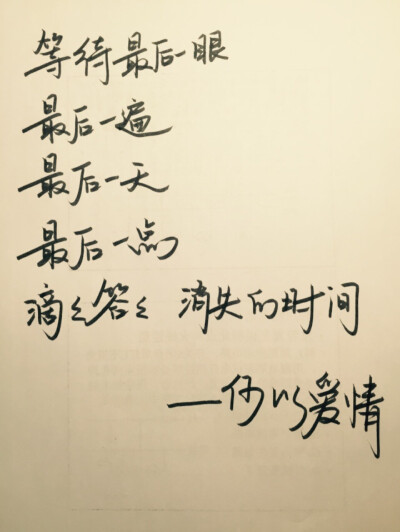 等待最后一眼
最后一遍
最后一天
最后一点
滴〻答〻 消失的时间
—何以爱情